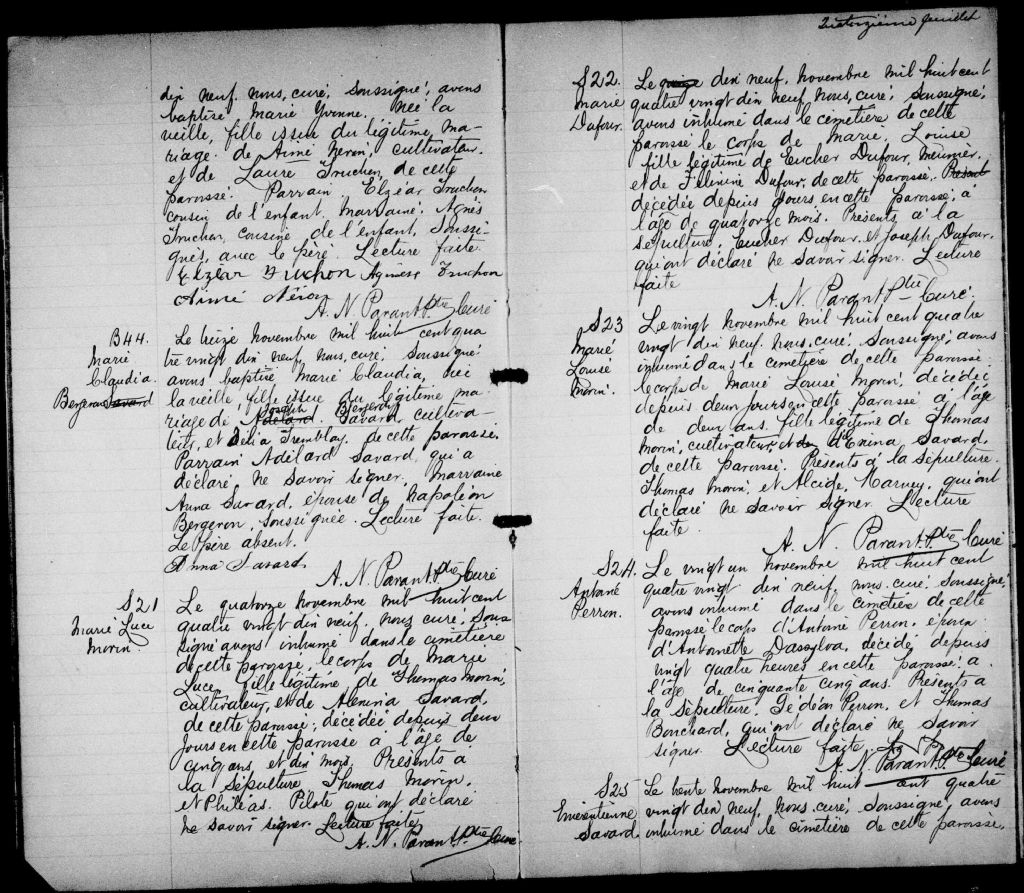 dix neuf. nous, curé, soussigné, avons
baptisé Marie Yvonne. née la
veille, fille issue du légitime ma-
riage. de Aimé Neron, cultivateur,
et de Laure Truchon, de cette
paroisse. Parrain Elzéar Truchon
cousin de l'enfant. marraine. Agnès
Truchon, cousine de l'enfant, soussi-
gnés, avec le père. Lecture faite.
Elzéar Truchon Agness Truchon
Aimé Néron
A. N. Parant Ptre Curé
B44.
Marie
Claudia.
Bergeron Savard
Le treize novembre mil huit cent qua
tre vingt dix neuf, nous, curé, soussigné
avons baptisé Marie Claudia, née
la veille, fille issue du légitime ma-
Joseph Bergeron
riage de Adélard Savard cultiva-
teur, et Délia Tremblay. de cette paroisse.
Parrain Adélard Savard, qui a
déclaré ne savoir signer. marraine
Anna Savard, épouse de Napoléon
Bergeron, soussignée. Lecture faite.
Le père absent.
Anna Savard
A. N. Parant Ptre Curé
S21
Marie Luce
Morin.
Le quatorze novembre mil huit cent
quatre vingt dix neuf. nous curé, sous
signé avons inhumé dans le cimetière
de cette paroisse, le corps de Marie
Luce, fille légitime de Thomas Morin,
cultivateur, et de Savard,
de cette paroisse, décédée depuis deux
jours en cette paroisse à l'âge de
cinq ans, et dix mois. Présents à
la sépulture Thomas Morin,
et Philéas. Pilote qui ont déclaré
ne savoir signer. Lecture faite
A. N. Parant Ptre Curé
feuillet
S22.
Marie
Dufour.
Le dix neuf, novembre mil huit cent
quatre vingt dix neuf, nous, curé, soussigné,
avons inhumé dans le cemetière de cette
paroisse le corps de Marie, Louise
fille légitime de Eucher Dufour, meunier.
et de Dufour, de cette paroisse. Présent
décédée depuis jours en cette paroisse, à
l'âge de quatorze mois. Présents, à la
sépulture, Eucher Dufour, et Joseph Dufour.
qui ont déclaré ne savoir signer. Lecture
faite
A. N. Parant Ptre Curé.
S23
Marie
Louise
Morin.
Le vingt novembre mil huit cent quatre
vingt dix neuf. nous, curé. soussigné, avons
inhumé dans le cemetière de cette paroisse
le corps de Marie Louise Morin, décédée
depuis deux jours en cette paroisse à l'âge
de deux ans. fille légitime de Thomas
Morin, cultivateur, et de Savard,
de cette paroisse. Présents à la sépulture.
Thomas Morin, et Alcide, Harvey, qui ont
déclaré ne savoir signer. Lecture
faite.
A. N. Parant Ptre Curé
S24.
Antoine
Perron.
Le vingt un novembre mil huit cent
quatre vingt dix neuf, nous, curé soussigné,
avons inhumé dans le cimetière de cette
paroisse le corps d'Antoine Perron, époux
d'Antoinette Dassylva, décédé depuis
vingt quatre heures en cette paroisse. à
l'âge de cinquante cinq ans. Présents à
la sépulture, Gédéon Perron, et Thomas
Bouchard, qui ont déclaré ne savoir
signer. Lecture faite.
A. N. Parant Ptre Curé
S25
Savard.
Le trente novembre mil huit cent quatre
vingt dix neuf, nous, curé, soussigné, avons
inhumé dans le cimetière de cette paroisse,